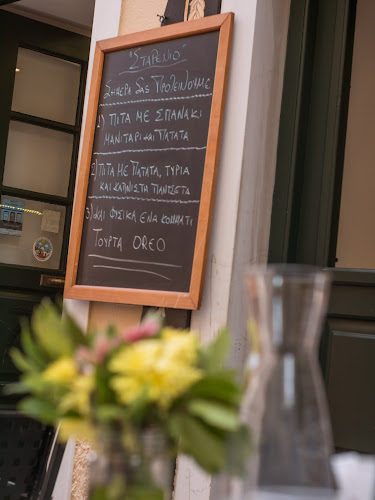 "ΣΤΑΡΕΝΙΟ"
ΣΗΜΕΡΑ ΣΑΣ ΠΡΟΤΕΙΝΟΥΜΕ
1) ΠΙΤΑ ΜΕ ΣΠΑΝΑΚΙ
ΜΑΝΙΤΑΡΙ ΚΑΙ ΠΑΤΑΤΑ
2) ΠΙΤΑ ΜΕ ΠΑΤΑΤΑ, ΤΥΡΙΑ
ΚΑΙ ΚΑΠΝΙΣΤΗ ΠΑΝΣΕΤΑ
3) ΚΑΙ ΦΥΣΙΚΑ ΕΝΑ ΚΟΜΜΑΤΙ
ΤΟΥΡΤΑ OREO